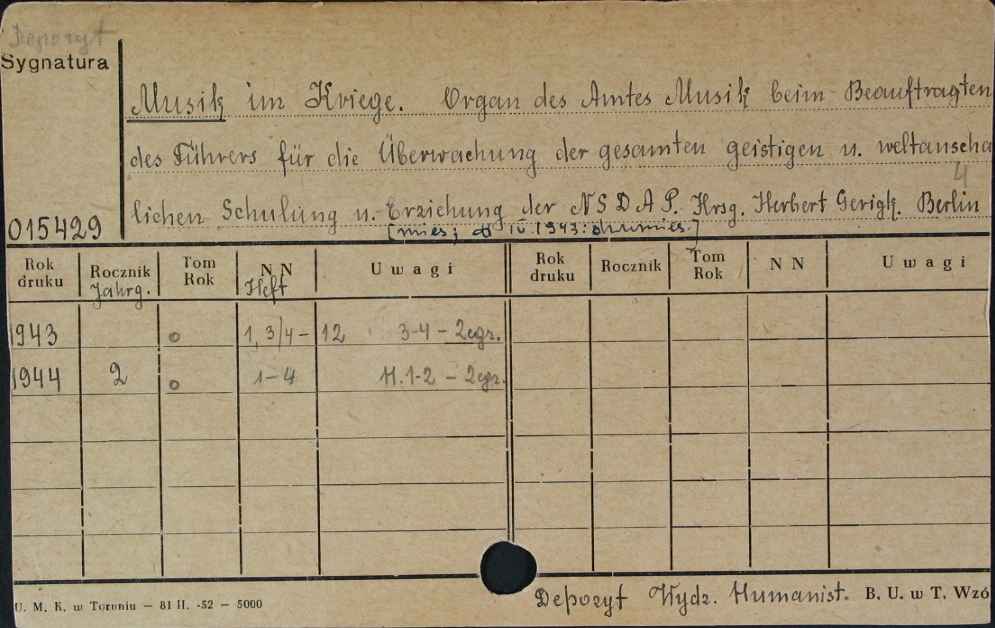 Depozyt
Sygnatura
Musik im Kriege. Organ des Amtes Musik beim Beauftragten
des Führers für die Überwachung der gesamten geistigen u. weltanscha
4
015429
lichen Schulung u. Erziehung der NSDAP. Hrsg. Herbert Gerigk. Berlin
[mies; od IV 1943: dwumies.]
Rok druku Rocznik Tom Rok NN Uwagi Rok druku Rocznik Tom Rok NN Uwagi
Jahrg. Heft
1943 o 1, 3/4 - 12 3-4 - 2egz.
1944 2 o 1-4 H.1-2 - 2egz.
U. M. K. w Toruniu — 81 II. -52 — 5000
Depozyt Wydz. Humanist. B. U. w T. Wzó